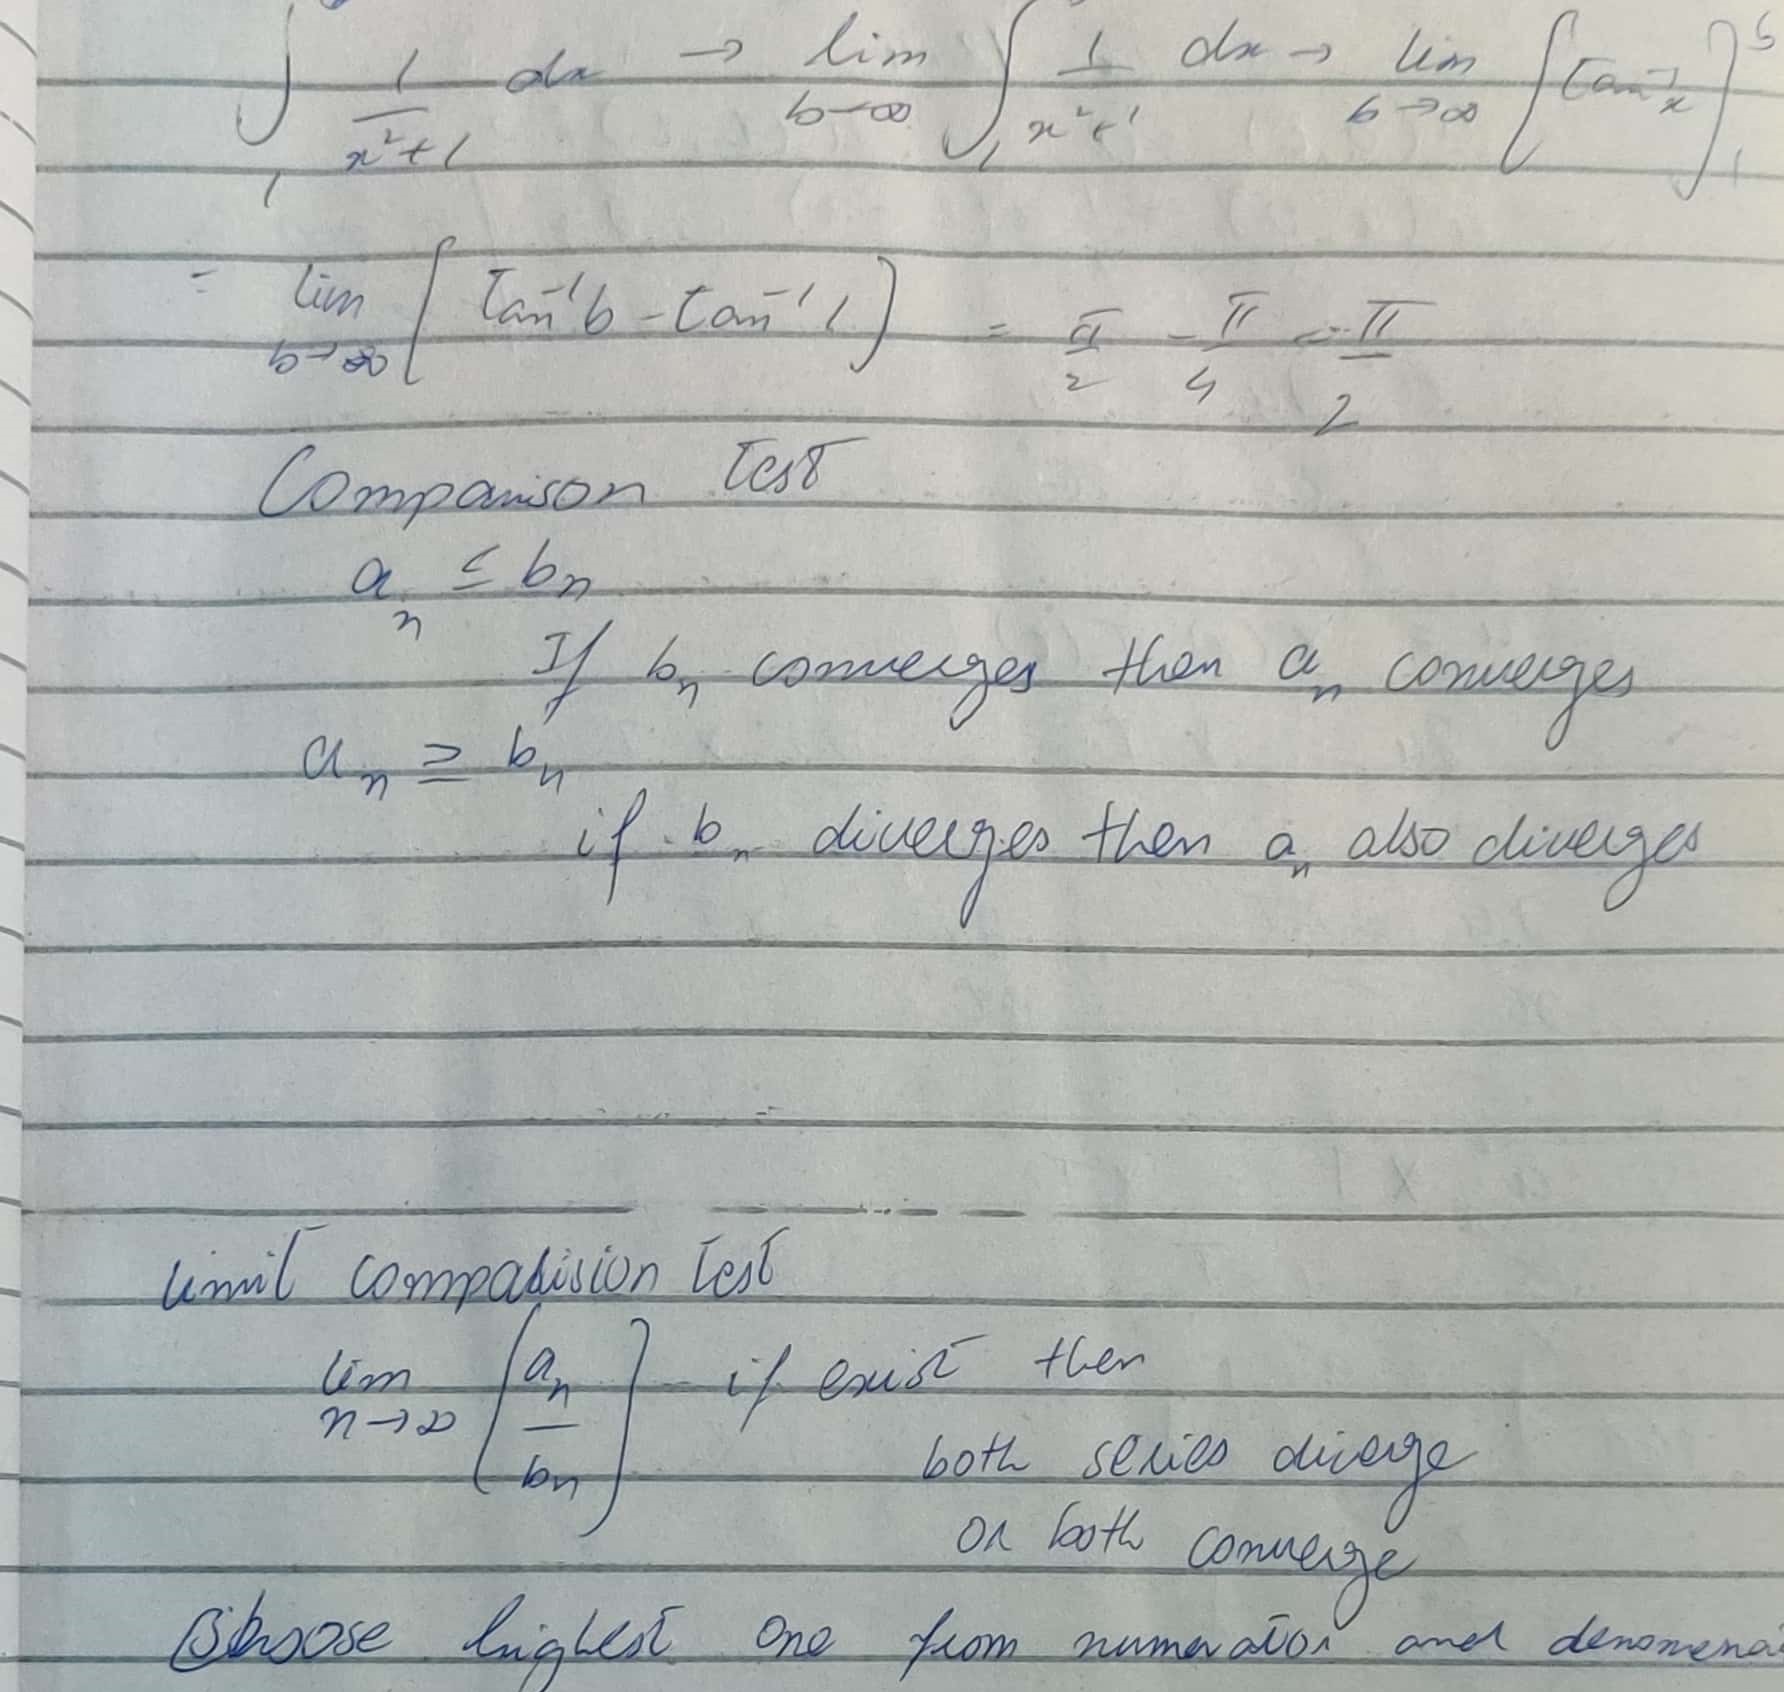 ∫₁ 1/(x²+1) dx → lim b→∞ ∫₁ 1/(x²+1) dx → lim b→∞ [tan⁻¹x]₁ᵇ
= lim b→∞ [tan⁻¹b - tan⁻¹1] = π/2 - π/4 = π/2
Comparison test
aₙ ≤ bₙ
If bₙ converges then aₙ converges
aₙ ≥ bₙ
if bₙ diverges then aₙ also diverges
limit comparision test
lim n→∞ (aₙ/bₙ) if exist then
both series diverge
or both converge
Choose highest one from numerator and denomena